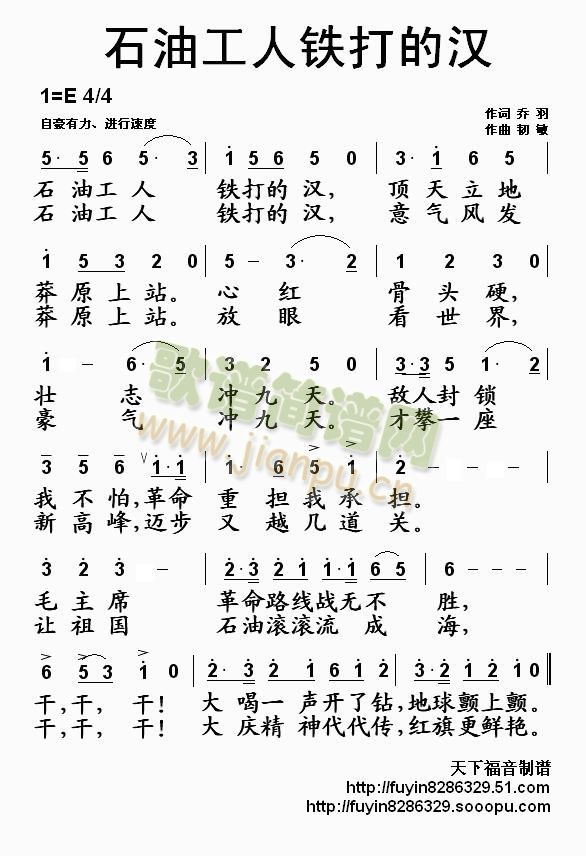 石油工人铁打的汉
1=E 4/4
作词 乔 羽
自豪有力、进行速度
作曲 韧 敏
5· 5 6 5· 3 | 1 5 6 5 0 | 3· 1 6 5
石 油 工 人 铁打的 汉, 顶 天 立 地
石 油 工 人 铁打的 汉, 意 气 风 发
1 5 3 2 0 | 5 – 3· 2 | 1 2 3 0
莽 原 上 站。 心 红 骨 头 硬,
莽 原 上 站。 放 眼 看 世 界,
1 – 6· 5 | 3 2 5 0 | 3·3 5 1· 2
壮 志 冲 九 天。 敌人 封 锁
豪 气 冲 九 天。 才攀 一 座
歌谱简谱网
www.jianpu.cn
3 5 6 V 1·1 | 1· 6 5 1 | 2 – –
我 不 怕,革命 重 担 我 承 担。
新 高 峰,迈步 又 越 几 道 关。
3 2 3 – | 2·3 2 1 1·2 6 5 | 6 – – –
毛 主 席 革命路线战无不 胜,
让 祖 国 石油滚滚流 成 海,
6 5 3 1 0 | 2·3 2 1 6 1 5 | 3·2 1 2 1 0
干, 干, 干! 大 喝一 声开了钻,地球颤上颤。
干, 干, 干! 大 庆精 神代代传,红旗更鲜艳。
天下福音制谱
http://fuyin8286329.51.com
http://fuyin8286329.sooopu.com